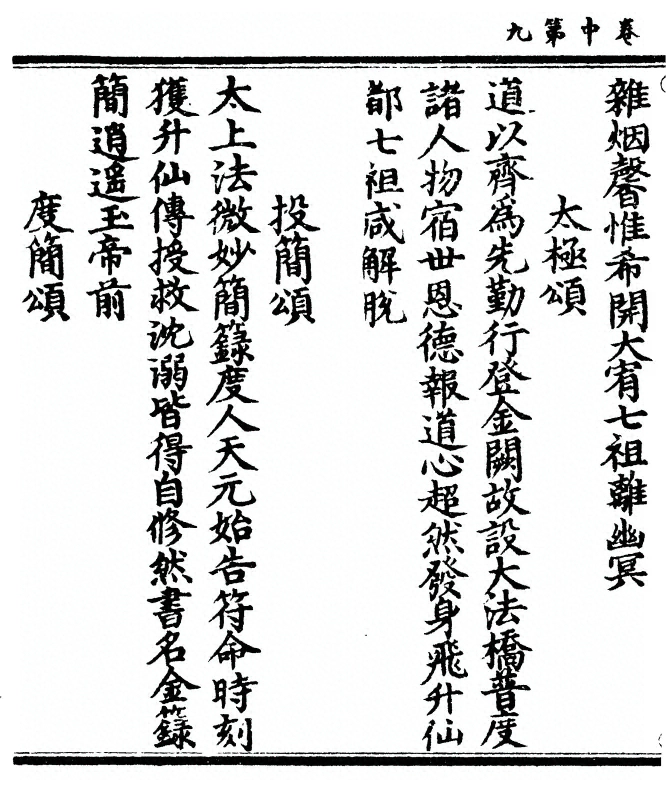 卷中第九
雜烟馨惟希開大宥七祖離幽冥
太極頌
道以齊為先勤行登金闕故設大法橋普度
諸人物宿世恩德報道心超然發身飛升仙
都七祖咸解脫
投簡頌
太上法微妙簡籙度人天元始告符命時刻
獲升仙傳授救沈溺皆得自修然書名金籙
簡逍遥玉帝前
度簡頌